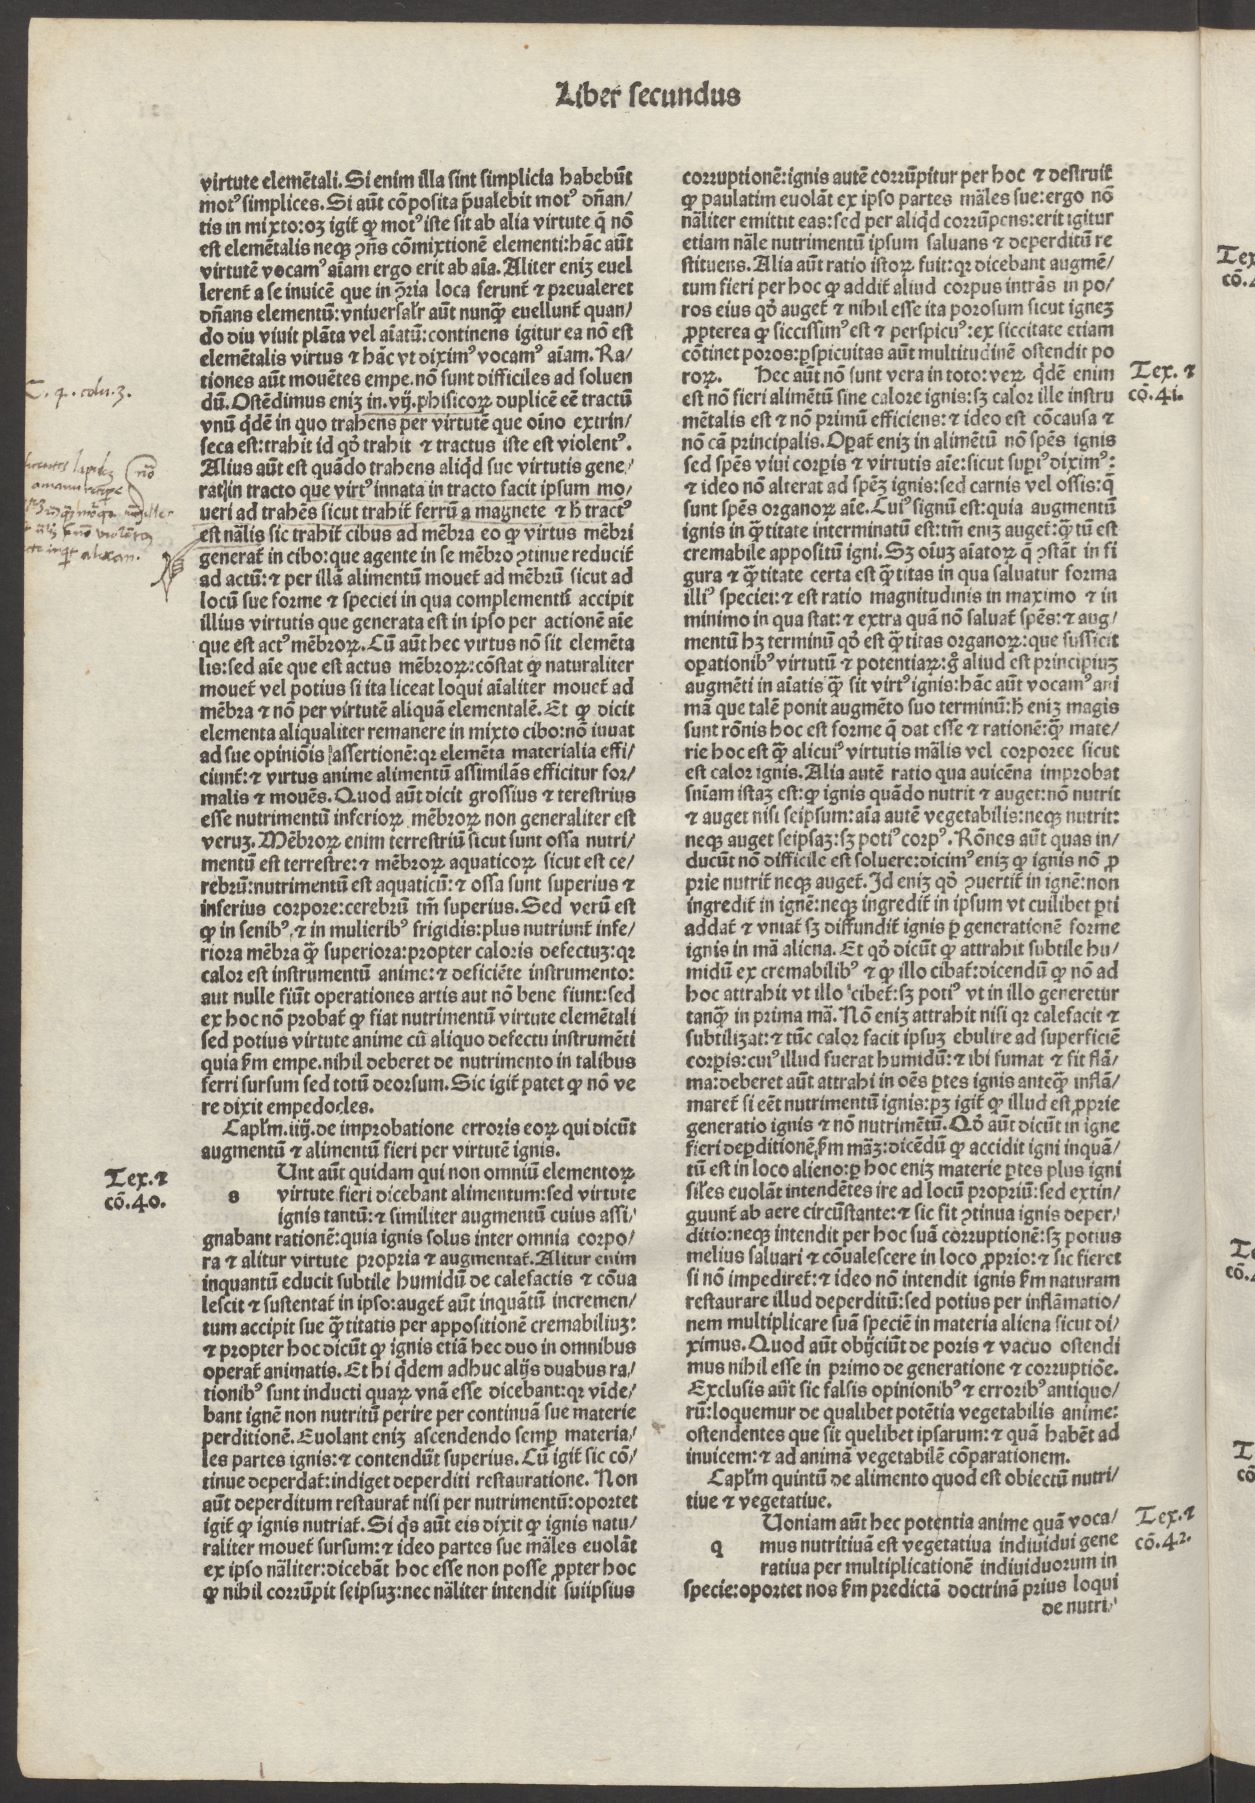 Liber secundus
virtute elemētali. Si enim illa sint simplicia habebūt
motꝰ simplices. Si aūt cōposita p̄ualebit motꝰ dn̄an/
tis in mixto: oꝫ igit̄ ꝙ motꝰ iste sit ab alia virtute q̄ nō
est elemētalis neqꝫ ꝯn̄s cōmixtionē elementi: hāc aūt
virtutē vocamꝰ aīam ergo erit ab aīa. Aliter eniꝫ euel
lerent̄ a se inuicē que in ꝯ̄ria loca ferunt̄ ⁊ preualeret
dn̄ans elementū: vniuersalr̄ aūt nunqꝫ̄ euellunt̄ quan/
do diu viuit plāta vel aīatū: continens igitur ea nō est
elemētalis virtus ⁊ hāc vt diximꝰ vocamꝰ aīam. Ra/
tiones aūt mouētes empe. nō sunt difficiles ad soluen
dū. Ostēdimus eniꝫ in. vij. phisicoꝝ duplicē eē tractū
vnū q̇dē in quo trahens per virtutē que oīno extrin/
seca est: trahit id qd̓ trahit ⁊ tractus iste est violentꝰ.
Alius aūt est quādo trahens aliqd̓ sue virtutis gene/
rat in tracto que virtꝰ innata in tracto facit ipsum mo/
ueri ad trahēs sicut trahit̄ ferrū a magnete ⁊ h̄ tractꝰ
est nālis sic trahit̄ cibus ad mēbra eo ꝙ virtus mēbri
generat̄ in cibo: que agente in se mēbro ꝯtinue reducit̄
ad actū: ⁊ per illā alimentū mouet̄ ad mēbrū sicut ad
locū sue forme ⁊ speciei in qua complementū accipit
illius virtutis que generata est in ipso per actionē aīe
que est actꝰ mēbroꝝ. Cū aūt hec virtus nō sit elemēta
lis: sed aīe que est actus mēbroꝝ: cōstat ꝙ naturaliter
mouet̄ vel potius si ita liceat loqui aīaliter mouet̄ ad
mēbra ⁊ nō per virtutē aliquā elementalē. Et ꝙ dicit
elementa aliqualiter remanere in mixto cibo: nō iuuat
ad sue opiniōis assertionē: qr elemēta materialia effi/
ciunt̄: ⁊ virtus anime alimentū assimilās efficitur for/
malis ⁊ mouēs. Quod aūt dicit grossius ⁊ terestrius
esse nutrimentū inferioꝝ mēbroꝝ non generaliter est
veruꝫ. Mēbroꝝ enim terrestriū sicut sunt ossa nutri/
mentū est terrestre: ⁊ mēbroꝝ aquaticoꝝ sicut est ce/
rebrū: nutrimentū est aquaticū: ⁊ ossa sunt superius ⁊
inferius corpore: cerebrū tm̄ superius. Sed verū est
ꝙ in senibꝰ, ⁊ in mulieribꝰ frigidis: plus nutriunt̄ infe/
riora mēbra qꝫ̄ superiora: propter caloris defectuꝫ: qr
calor est instrumentū anime: ⁊ deficiēte instrumento:
aut nulle fiūt operationes artis aut nō bene fiunt: sed
ex hoc nō probat̄ ꝙ fiat nutrimentū virtute elemētali
sed potius virtute anime cū aliquo defectu instrumēti
quia ẜm empe. nihil deberet de nutrimento in talibus
ferri sursum sed totū deorsum. Sic igit̄ patet ꝙ nō ve
re dixit empedocles.
Caplm̄. iiij. de improbatione erroris eoꝝ qui dicūt
augmentū ⁊ alimentū fieri per virtutē ignis.
Tex. ⁊
cō. 40.
s
Unt aūt quidam qui non omniū elementoꝝ
virtute fieri dicebant alimentum: sed virtute
ignis tantū: ⁊ similiter augmentū cuius assi/
gnabant rationē: quia ignis solus inter omnia corpo/
ra ⁊ alitur virtute propria ⁊ augmentat̄. Alitur enim
inquantū educit subtile humidū de calefactis ⁊ cōua
lescit ⁊ sustentat̄ in ipso: auget̄ aūt inquātū incremen/
tum accipit sue qꝫ̄titatis per appositionē cremabiliuꝫ:
⁊ propter hoc dicūt ꝙ ignis etiā hec duo in omnibus
operat̄ animatis. Et hi q̇dem adhuc alijs duabus ra/
tionibꝰ sunt inducti quaꝝ vnā esse dicebant: qr vīde/
bant ignē non nutritū perire per continuā sue materie
perditionē. Euolant eniꝫ ascendendo semꝑ materia/
les partes ignis: ⁊ contendūt superius. Cū igit̄ sic cō/
tinue deperdat̄: indiget deperditi restauratione. Non
aūt deperditum restaurat̄ nisi per nutrimentū: oportet
igit̄ ꝙ ignis nutriat̄. Si q̇s aūt eis dixit ꝙ ignis natu/
raliter mouet̄ sursum: ⁊ ideo partes sue māles euolāt
ex ipso nāliter: dicebāt hoc esse non posse ꝓpter hoc
ꝙ nihil corrūpit seipsuꝫ: nec nāliter intendit suiipsius
corruptionē: ignis autē corrūpitur per hoc ⁊ destruit̄
ꝙ paulatim euolāt ex ipso partes māles sue: ergo nō
nāliter emittit eas: sed per aliqd̓ corrūpens: erit igitur
etiam nāle nutrimentū ipsum saluans ⁊ deperditū re
stituens. Alia aūt ratio istoꝝ fuit: qr dicebant augmē/
tum fieri per hoc ꝙ addit̄ aliud corpus intrās in po/
ros eius qd̓ auget̄ ⁊ nihil esse ita porosum sicut igneꝫ
ꝓpterea ꝙ siccissimꝰ est ⁊ perspicuꝰ: ex siccitate etiam
cōtinet poros: ꝑspicuitas aūt multitudinē ostendit po
roꝝ. Hec aūt nō sunt vera in toto: veꝝ q̇dē enim
est nō fieri alimētū sine calore ignis: sꝫ calor ille instru
mētalis est ⁊ nō primū efficiens: ⁊ ideo est cōcausa ⁊
nō cā principalis. Oꝑat̄ eniꝫ in alimētū nō spēs ignis
sed spēs viui corꝑis ⁊ virtutis aīe: sicut supͥꝰ diximꝰ:
⁊ ideo nō alterat ad spēꝫ ignis: sed carnis vel ossis: q̄
sunt spēs organoꝝ aīe. Cuiꝰ signū est: quia augmentū
ignis in qꝫ̄titate interminatū est: tm̄ eniꝫ auget̄: qꝫ̄tū est
cremabile appositū igni. Sꝫ oīuꝫ aīatoꝝ q̄ ꝯstāt in fi
gura ⁊ qꝫ̄titate certa est qꝫ̄titas in qua saluatur forma
illiꝰ speciei: ⁊ est ratio magnitudinis in maximo ⁊ in
minimo in qua stat: ⁊ extra quā nō saluat̄ spēs: ⁊ aug/
mentum hꝫ terminū qd̓ est qꝫ̄titas organoꝝ: que sufficit
oꝑationibꝰ virtutū ⁊ potentiaꝝ: gͦ aliud est principiuꝫ
augmēti in aīatis qꝫ̄ sit virtꝰ ignis: hāc aūt vocamꝰ ani
mā que talē ponit augmēto suo terminū: h̄ eniꝫ magis
sunt rōnis hoc est forme q̄ dat esse ⁊ rationē: qꝫ̄ mate/
rie hoc est qꝫ̄ alicuiꝰ virtutis mālis vel corporee sicut
est calor ignis. Alia autē ratio qua auicēna improbat
sniam istaꝫ est: ꝙ ignis quādo nutrit ⁊ auget: nō nutrit
⁊ auget nisi seipsum: aīa autē vegetabilis: neqꝫ nutrit:
neqꝫ auget seipsaꝫ: sꝫ potiꝰ corpꝰ. Rōnes aūt quas in/
ducūt nō difficile est soluere: dicimꝰ eniꝫ ꝙ ignis nō ꝓ
prie nutrit̄ neqꝫ auget̄. Id eniꝫ qd̓ ꝯuertit̄ in ignē: non
ingredit̄ in ignē: neqꝫ ingredit̄ in ipsum vt cuilibet ꝑti
addat̄ ⁊ vniat̄ sꝫ diffundit̄ ignis ꝑ generationē forme
ignis in mā aliena. Et qd̓ dicūt ꝙ attrahit subtile hu/
midū ex cremabilibꝰ ⁊ ꝙ illo cibat̄: dicendū ꝙ nō ad
hoc attrahit vt illo cibet̄: sꝫ potiꝰ vt in illo generetur
tanqꝫ̄ in prima mā. Nō eniꝫ attrahit nisi qr calefacit ⁊
subtilizat: ⁊ tūc calor facit ipsuꝫ ebulire ad superficiē
corꝑis: cuiꝰ illud fuerat humidū: ⁊ ibi fumat ⁊ fit flā/
ma: deberet aūt attrahi in oēs ꝑtes ignis anteqꝫ̄ inflā/
maret̄ si eēt nutrimentū ignis: pꝫ igit̄ ꝙ illud est ꝓprie
generatio ignis ⁊ nō nutrimētū. Qd̓ aūt dicūt in igne
fieri deꝑditionē ẜm māꝫ: dicēdū ꝙ accidit igni inquā/
tū est in loco alieno: ꝑ hoc eniꝫ materie ꝑtes plus igni
siles euolāt intendētes ire ad locū propriū: sed extin/
guunt̄ ab aere circūstante: ⁊ sic fit ꝯtinua ignis deper/
ditio: neqꝫ intendit per hoc suā corruptionē: sꝫ potius
melius saluari ⁊ cōualescere in loco ꝓprio: ⁊ sic fieret
si nō impediret̄: ⁊ ideo nō intendit ignis ẜm naturam
restaurare illud deperditū: sed potius per inflāmatio/
nem multiplicare suā speciē in materia aliena sicut di/
ximus. Quod aūt obijciūt de poris ⁊ vacuo ostendi
mus nihil esse in primo de generatione ⁊ corruptiōe.
Exclusis aūt sic falsis opinionibꝰ ⁊ erroribꝰ antiquo/
rū: loquemur de qualibet potētia vegetabilis anime:
ostendentes que sit quelibet ipsarum: ⁊ quā habēt ad
inuicem: ⁊ ad animā vegetabilē cōparationem.
Caplm̄ quintū de alimento quod est obiectū nutri/
tiue ⁊ vegetatiue.
q
Uoniam aūt hec potentia anime quā voca/
mus nutritiuā est vegetatiua indiuidui gene
ratiua per multiplicationē indiuiduorum in
specie: oportet nos ẜm predictā doctrinā prius loqui
de nutri/
Tex. ⁊
cō. 41.
Tex. ⁊
cō. 42.